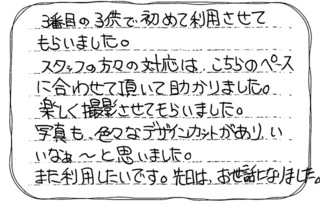 3番目の子供で初めて利用させて
もらいました。
スタッフの方々の対応は、こちらのペース
に合わせて頂いて助かりました。
楽しく撮影させてもらいました。
写真も、色々なデザインカットがあり、い
いなぁ〜と思いました。
また利用したいです。先日は、お世話になりました。